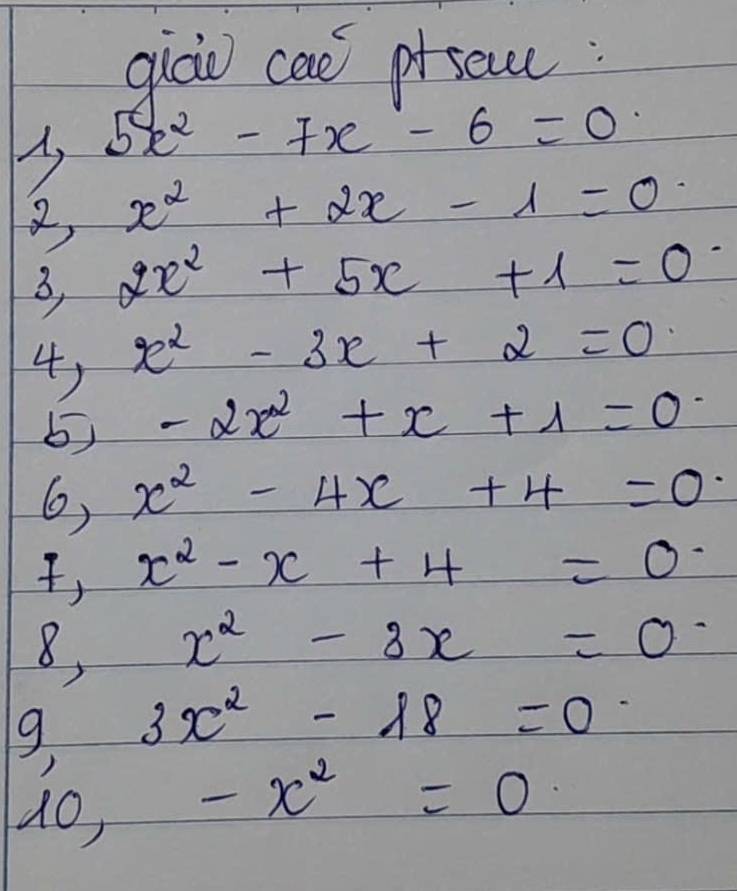 giải các pt sau :
1, 5x² - 7x - 6 = 0.
2, x² + 2x - 1 = 0.
3, 2x² + 5x + 1 = 0.
4, x² - 3x + 2 = 0.
5, - 2x² + x + 1 = 0.
6, x² - 4x + 4 = 0.
7, x² - x + 4 = 0.
8, x² - 3x = 0.
9, 3x² - 18 = 0.
10, - x² = 0.